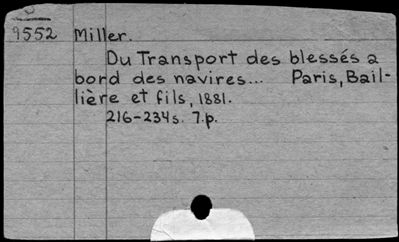 9552 Miller.
Du Transport des blessés a
bord des navires... Paris, Bail-
lière et fils, 1881.
216-234s. 7.p.